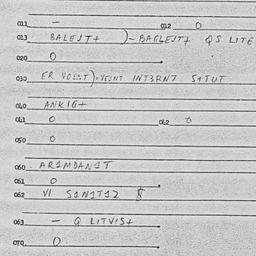 011 - 012 0
013 BALEJT+ )-BAGLEJT+ QS LITE
020 0
030 ER VOINT)-VEINT INT3RN7 S+TUT
040 ANKIG+
041 0 042 0
050 0
060 AR1MDAN1T
061 0
062 VI S1N1T12
063 - Q LITVIS+
070 0